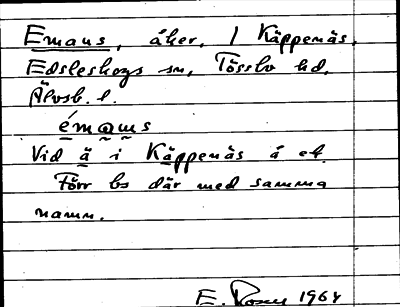 Emaus, åker, / Käppenäs,
Edsleskogs sn, Tössbo hd,
Älvsb. l.
émaus
Vid ä i Käppenäs å ek.
Förr bs där med samma
namn.
E. 1964